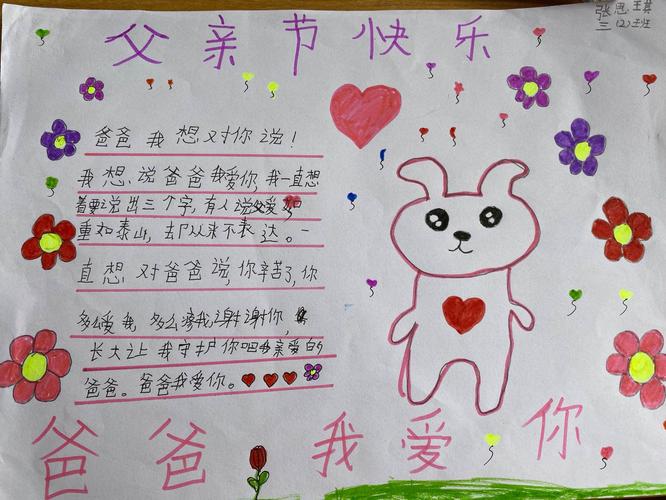 张思琪
三(2)班
父亲节快乐
爸爸我想对你说!
我想说爸爸我爱你,我一直想
着要说出三个字,有人说父爱如
重如泰山,却从来不表达。一
直想对爸爸说,你辛苦了,你
多么爱我,多么疼我谢谢你,
长大让我守护你吧我亲爱的
爸爸。爸爸我爱你。
爸爸我爱你